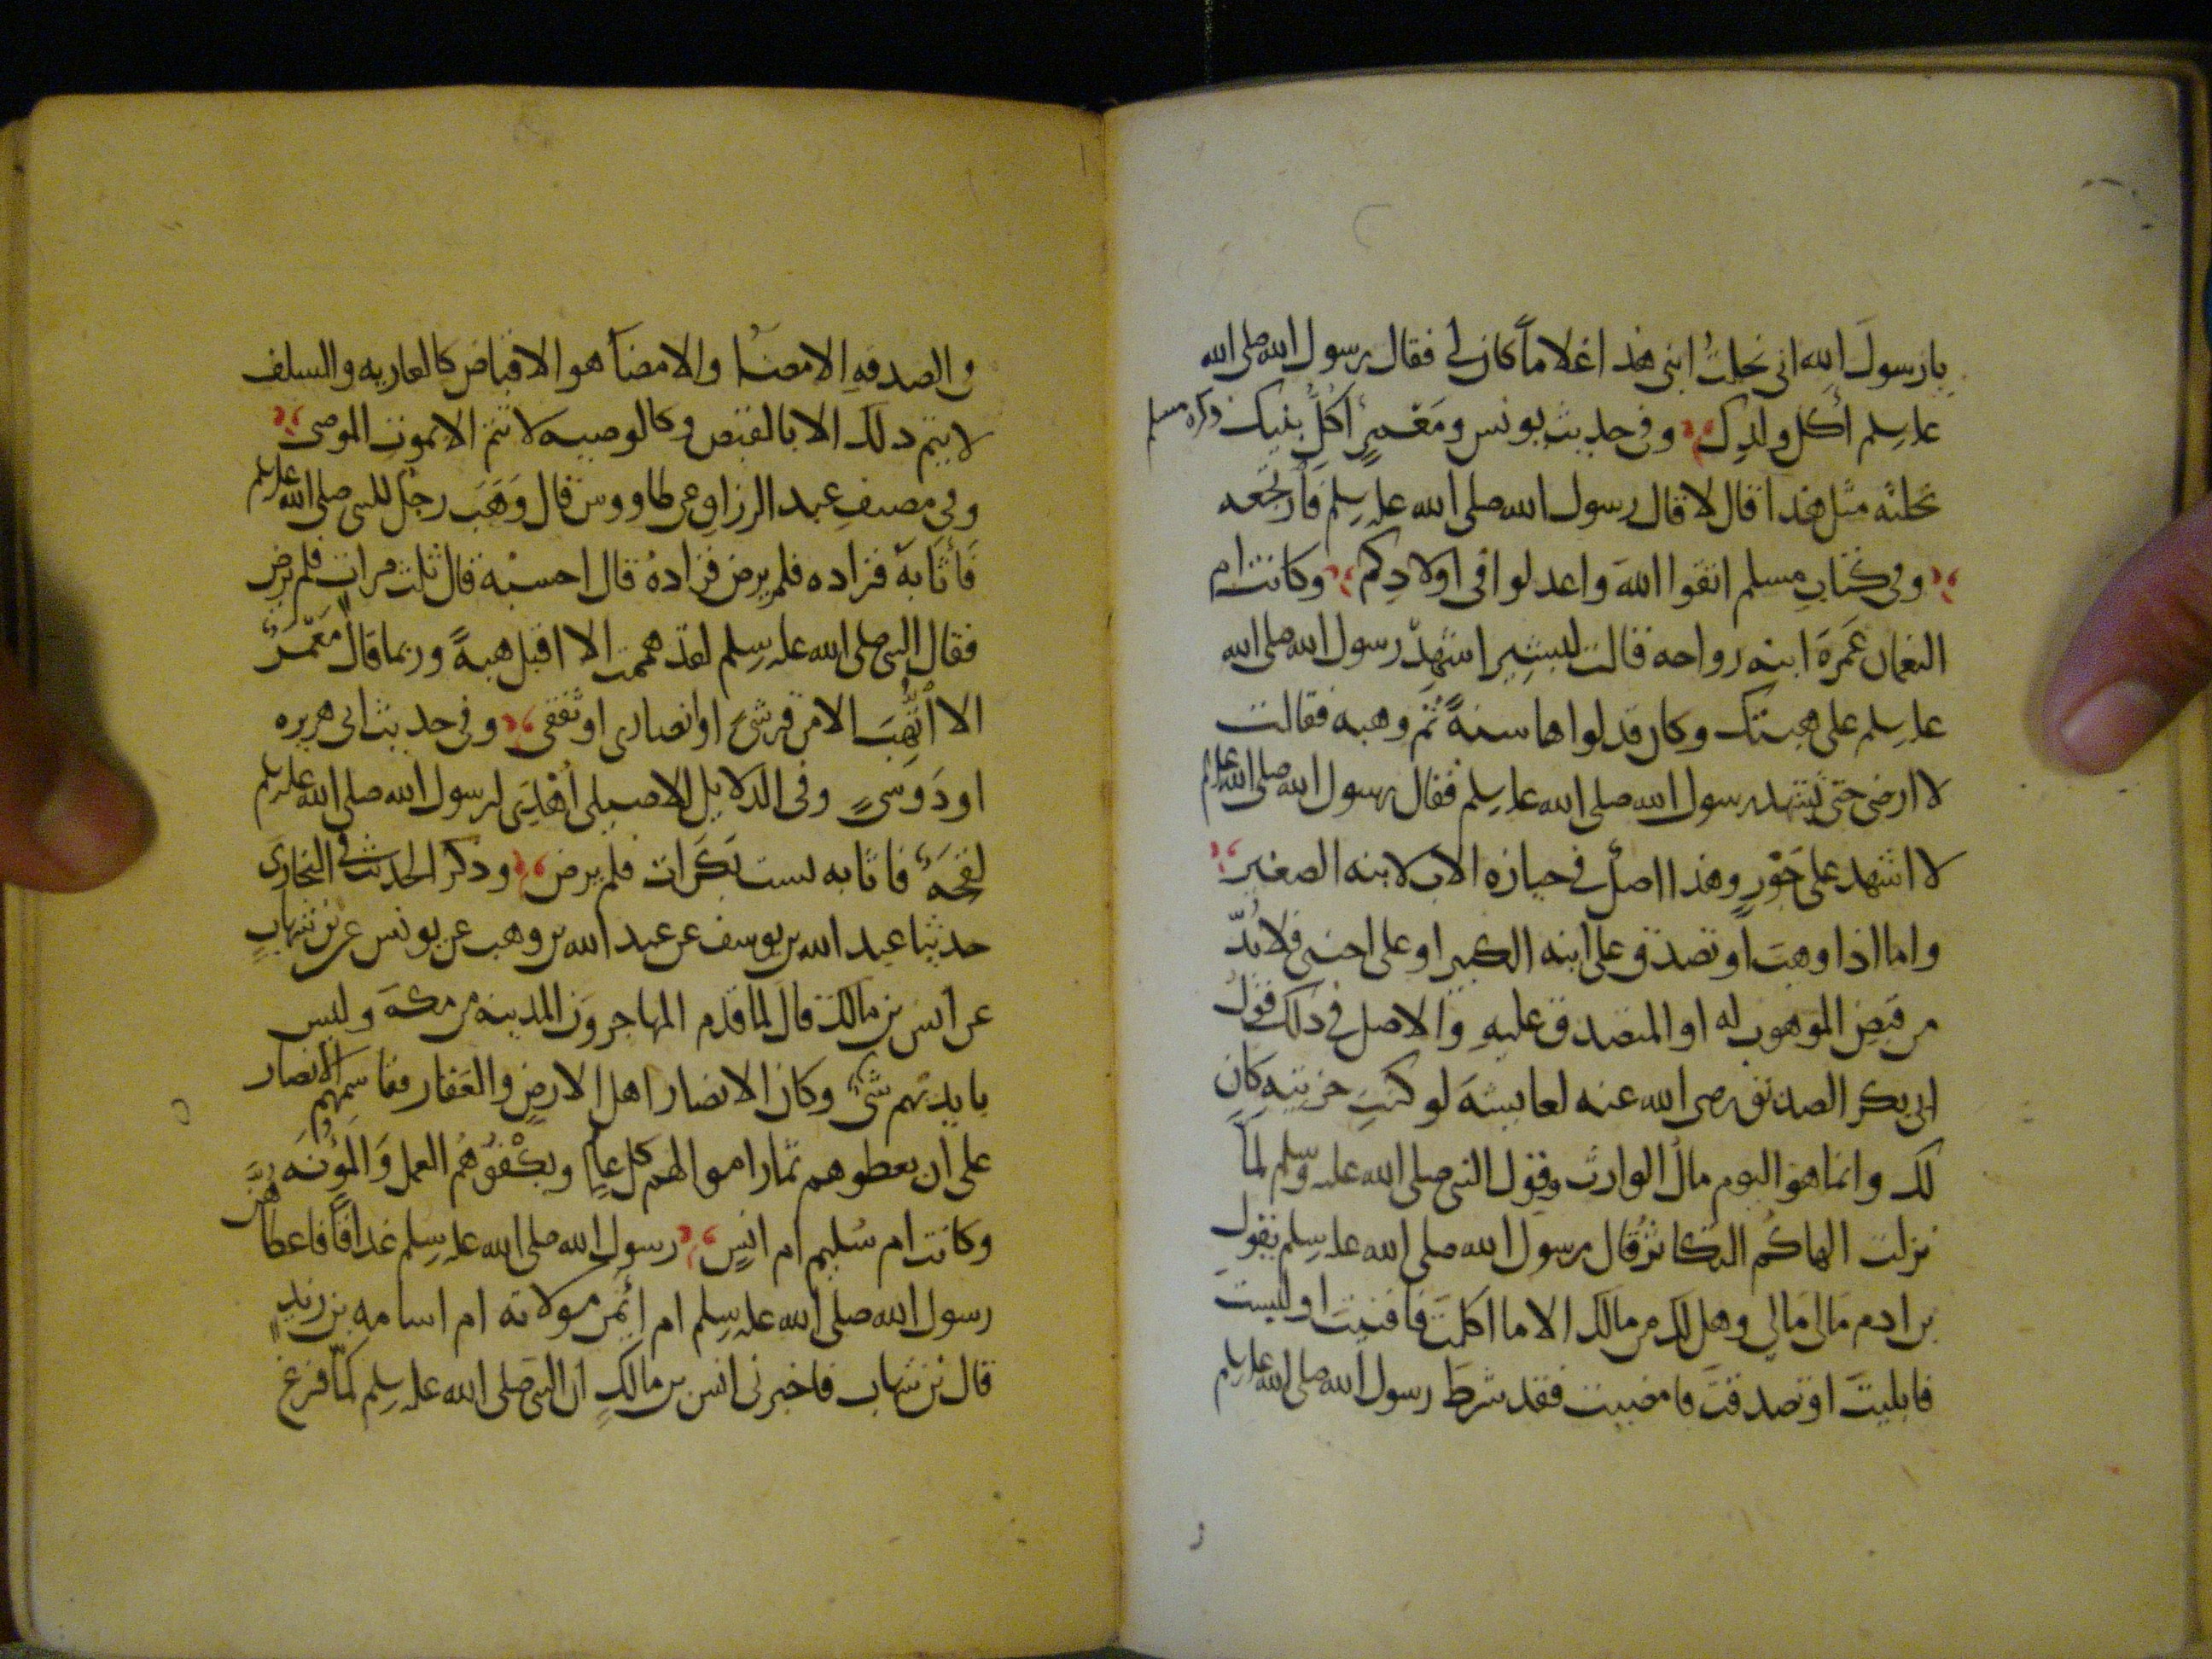 يا رسول الله اني نحلت ابني هذا غلاما كان لي فقال رسول الله صلى الله
عليه وسلم أكل ولدك وفي حديث يونس ومعمر أكل بنيك ذكره مسلم
نحلته مثل هذا قال لا قال رسول الله صلى الله عليه وسلم فأرتجعه
وفي كتاب مسلم اتقوا الله واعدلوا في اولادكم وكانت ام
النعمان عمرة ابنه رواحه قالت لبشير اشهد رسول الله صلى الله
عليه وسلم على هبتك وكان قد لواها سنة ثم وهبه فقالت
لا ارضى حتى تشهد رسول الله صلى الله عليه وسلم فقال رسول الله صلى الله عليه وسلم
لا اشهد على جور وهذا اصل في حيازه الاب لابنه الصغير
واما اذا وهب او تصدق على ابنه الكبير او على اجنبي فلا بد
من قبض الموهوب له او المتصدق عليه والاصل في ذلك قول
ابي بكر الصديق رضي الله عنه لعايشة لو كنت حزيتيه كان
لك وانما هو اليوم مال الوارث وقول النبي صلى الله عليه وسلم لما
نزلت الهاكم التكاثر قال رسول الله صلى الله عليه وسلم يقول
بن ادم مالي مالي وهل لك من مالك الا ما اكلت فافنيت او لبست
فابليت او تصدقت فامضيت فقد شرط رسول الله صلى الله عليه وسلم
في الصدقه الامضا والامضا هو الاقباض كالعاريه والسلف
لا يتم ذلك الا بالقبض وكالوصيه لا تتم الا بموت الموصي
وفي مصنف عبد الرزاق عن طاووس قال وهب رجل للنبي صلى الله عليه وسلم
فأثابه فزاده فلم يرض فزاده قال احسبه قال ثلث مرات فلم يرض
فقال النبي صلى الله عليه وسلم لقد هممت الا اقبل هبة وربما قال معمر
الا أتهب الا من قرشي او انصاري او ثقفي وفي حديث ابي هريره
او دوسي وفي الدلايل للاصيلي أهدي لرسول الله صلى الله عليه وسلم
لقحة فاثابه بست بكرات فلم يرض وذكر الحديث في البخاري
حدثنا عبد الله بن يوسف عن عبد الله بن وهب عن يونس عن بن شهاب
عن انس بن مالك قال لما قدم المهاجرون المدينه من مكة وليس
بايديهم شي وكان الانصار اهل الارض والعقار فقاسمهم الانصار
على ان يعطوهم ثمار اموالهم كل عام ويكفوهم العمل والمؤنه
وكانت ام سليم ام انس رسول الله صلى الله عليه وسلم عذاقا فاعطاهن
رسول الله صلى الله عليه وسلم ام ايمن مولاته ام اسامه بن زيد
قال بن شهاب فاخبرني انس بن مالك ان النبي صلى الله عليه وسلم لما فرغ